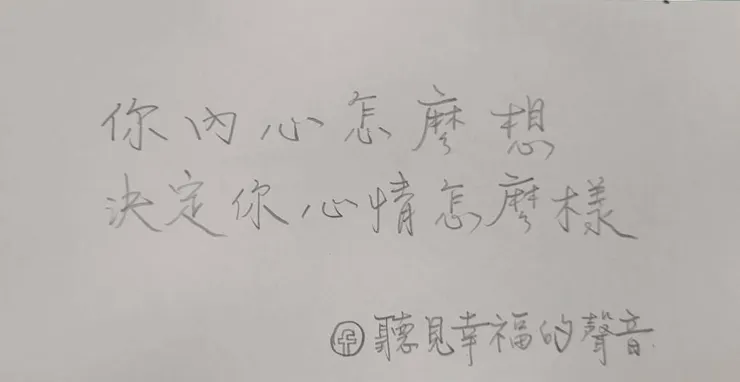 你內心怎麼想
決定你心情怎麼樣
聽見幸福的聲音